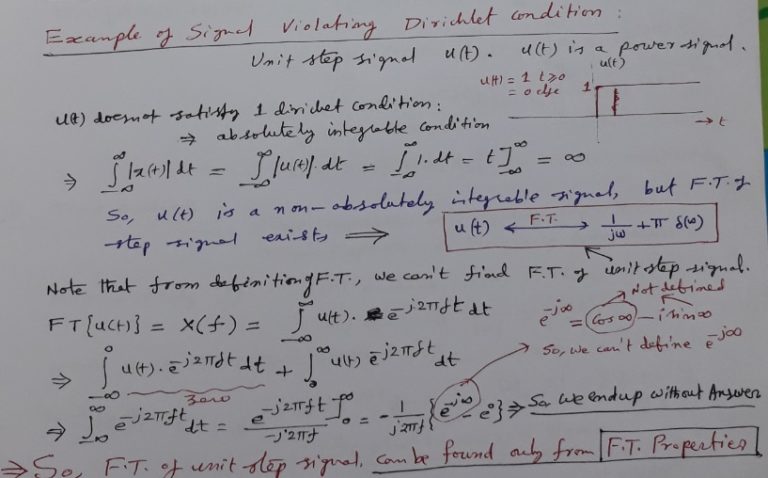 Example of Signal Violating Dirichlet condition :
Unit step signal u(t). u(t) is a power signal.
u(t) = 1 t≥0
= 0 else
u(t)
1
→ t
u(t) does not satisfy 1 dirichlet condition :
⇒ absolutely integrable condition
⇒ ∫_{-∞}^{∞} |x(t)| dt = ∫_{-∞}^{∞} |u(t)|. dt = ∫_{-∞}^{∞} 1. dt = t]_{-∞}^{∞} = ∞
So, u(t) is a non-absolutely integrable signal, but F.T. of
step signal exists ⟹ u(t) ⟷ F.T. 1/jω + π δ(ω)
Note that from definition of F.T., we can't find F.T. of unit step signal.
FT{u(t)} = X(f) = ∫_{-∞}^{∞} u(t). e^{-j2πft} dt
Not defined
e^{-j∞} = cos∞ - i sin∞
So, we can't define e^{-j∞}
⇒ ∫_{-∞}^{0} u(t). e^{-j2πft} dt + ∫_{0}^{∞} u(t) e^{-j2πft} dt
zero
⇒ ∫_{-∞}^{∞} e^{-j2πft} dt = e^{-j2πft}/-j2πf ]_{0}^{∞} = -1/j2πf {e^{-j∞} - e^{0}} ⇒ So we end up without Answer
⇒ So, F.T. of unit step signal, can be found only from F.T. Properties